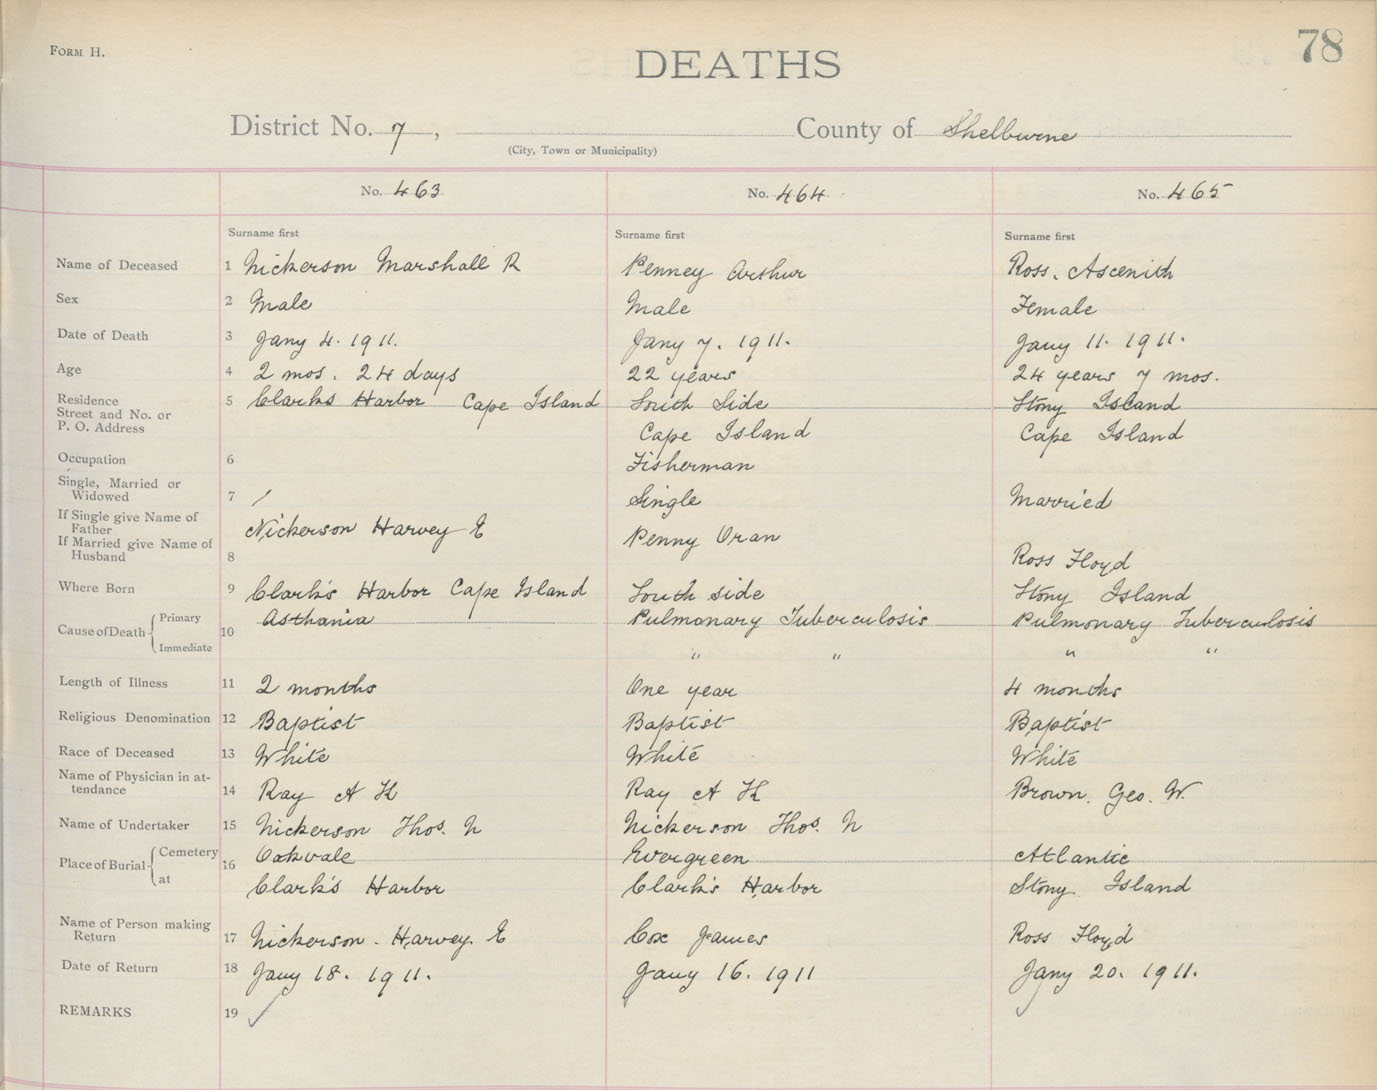 FORM H.
78
DEATHS
District No. 7, County of Shelburne
(City, Town or Municipality)
No. 463 No. 464 No. 465
Surname first Surname first Surname first
Name of Deceased 1 Nickerson Marshall R Penney Arthur Ross. Ascenith
Sex 2 Male Male Female
Date of Death 3 Jany 4. 1911. Jany 7. 1911. Jany 11. 1911.
Age 4 2 mos. 24 days 22 years 24 years 7 mos.
Residence 5 Clarks Harbor Cape Island South Side Stony Island
Street and No. or
P. O. Address Cape Island Cape Island
Occupation 6 Fisherman
Single, Married or
Widowed 7 / Single Married
If Single give Name of
Father Nickerson Harvey E Penny Oran
If Married give Name of
Husband 8 Ross Floyd
Where Born 9 Clark's Harbor Cape Island South side Stony Island
Cause of Death 10 Primary Asthania Pulmonary Tuberculosis Pulmonary Tuberculosis
Immediate " " " "
Length of Illness 11 2 months One year 4 months
Religious Denomination 12 Baptist Baptist Baptist
Race of Deceased 13 White White White
Name of Physician in at-
tendance 14 Ray A K Ray A K Brown. Geo. W.
Name of Undertaker 15 Nickerson Thos. N Nickerson Thos. N
Place of Burial 16 Cemetery Oakvale Evergreen Atlantic
at Clark's Harbor Clark's Harbor Stony Island
Name of Person making
Return 17 Nickerson. Harvey. E Cox James Ross Floyd
Date of Return 18 Jany 18. 1911. Jany 16. 1911 Jany 20. 1911.
REMARKS 19